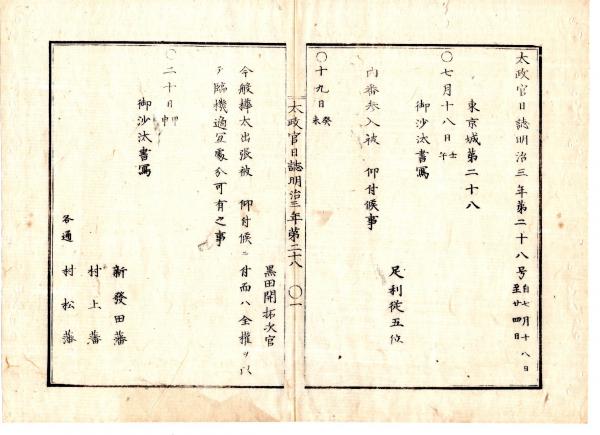 太政官日誌明治三年第二十八号 自七月十八日至廿四日
東京城第二十八
〇七月十八日 壬午
御沙汰書写
足利従五位
内番参入被 仰付候事
〇十九日 癸未
太政官日誌明治三年第二十八 〇一
黒田開拓次官
今般樺太出張被 仰付候ニ付而ハ全権ヲ以
テ臨機適宜処分可有之事
〇二十日 甲申
御沙汰書写
新發田藩
村上藩
各通 村松藩